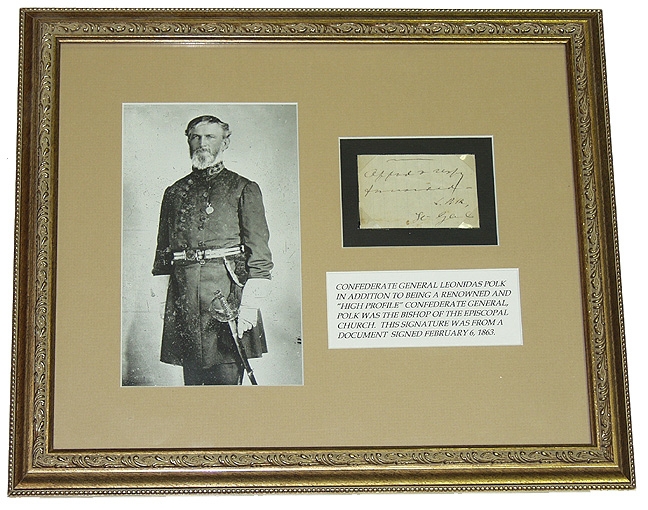 Appd & resfy
forwarded
L Polk,
Lt Genl
CONFEDERATE GENERAL LEONIDAS POLK
IN ADDITION TO BEING A RENOWNED AND
"HIGH PROFILE" CONFEDERATE GENERAL,
POLK WAS THE BISHOP OF THE EPISCOPAL
CHURCH. THIS SIGNATURE WAS FROM A
DOCUMENT SIGNED FEBRUARY 6, 1863.